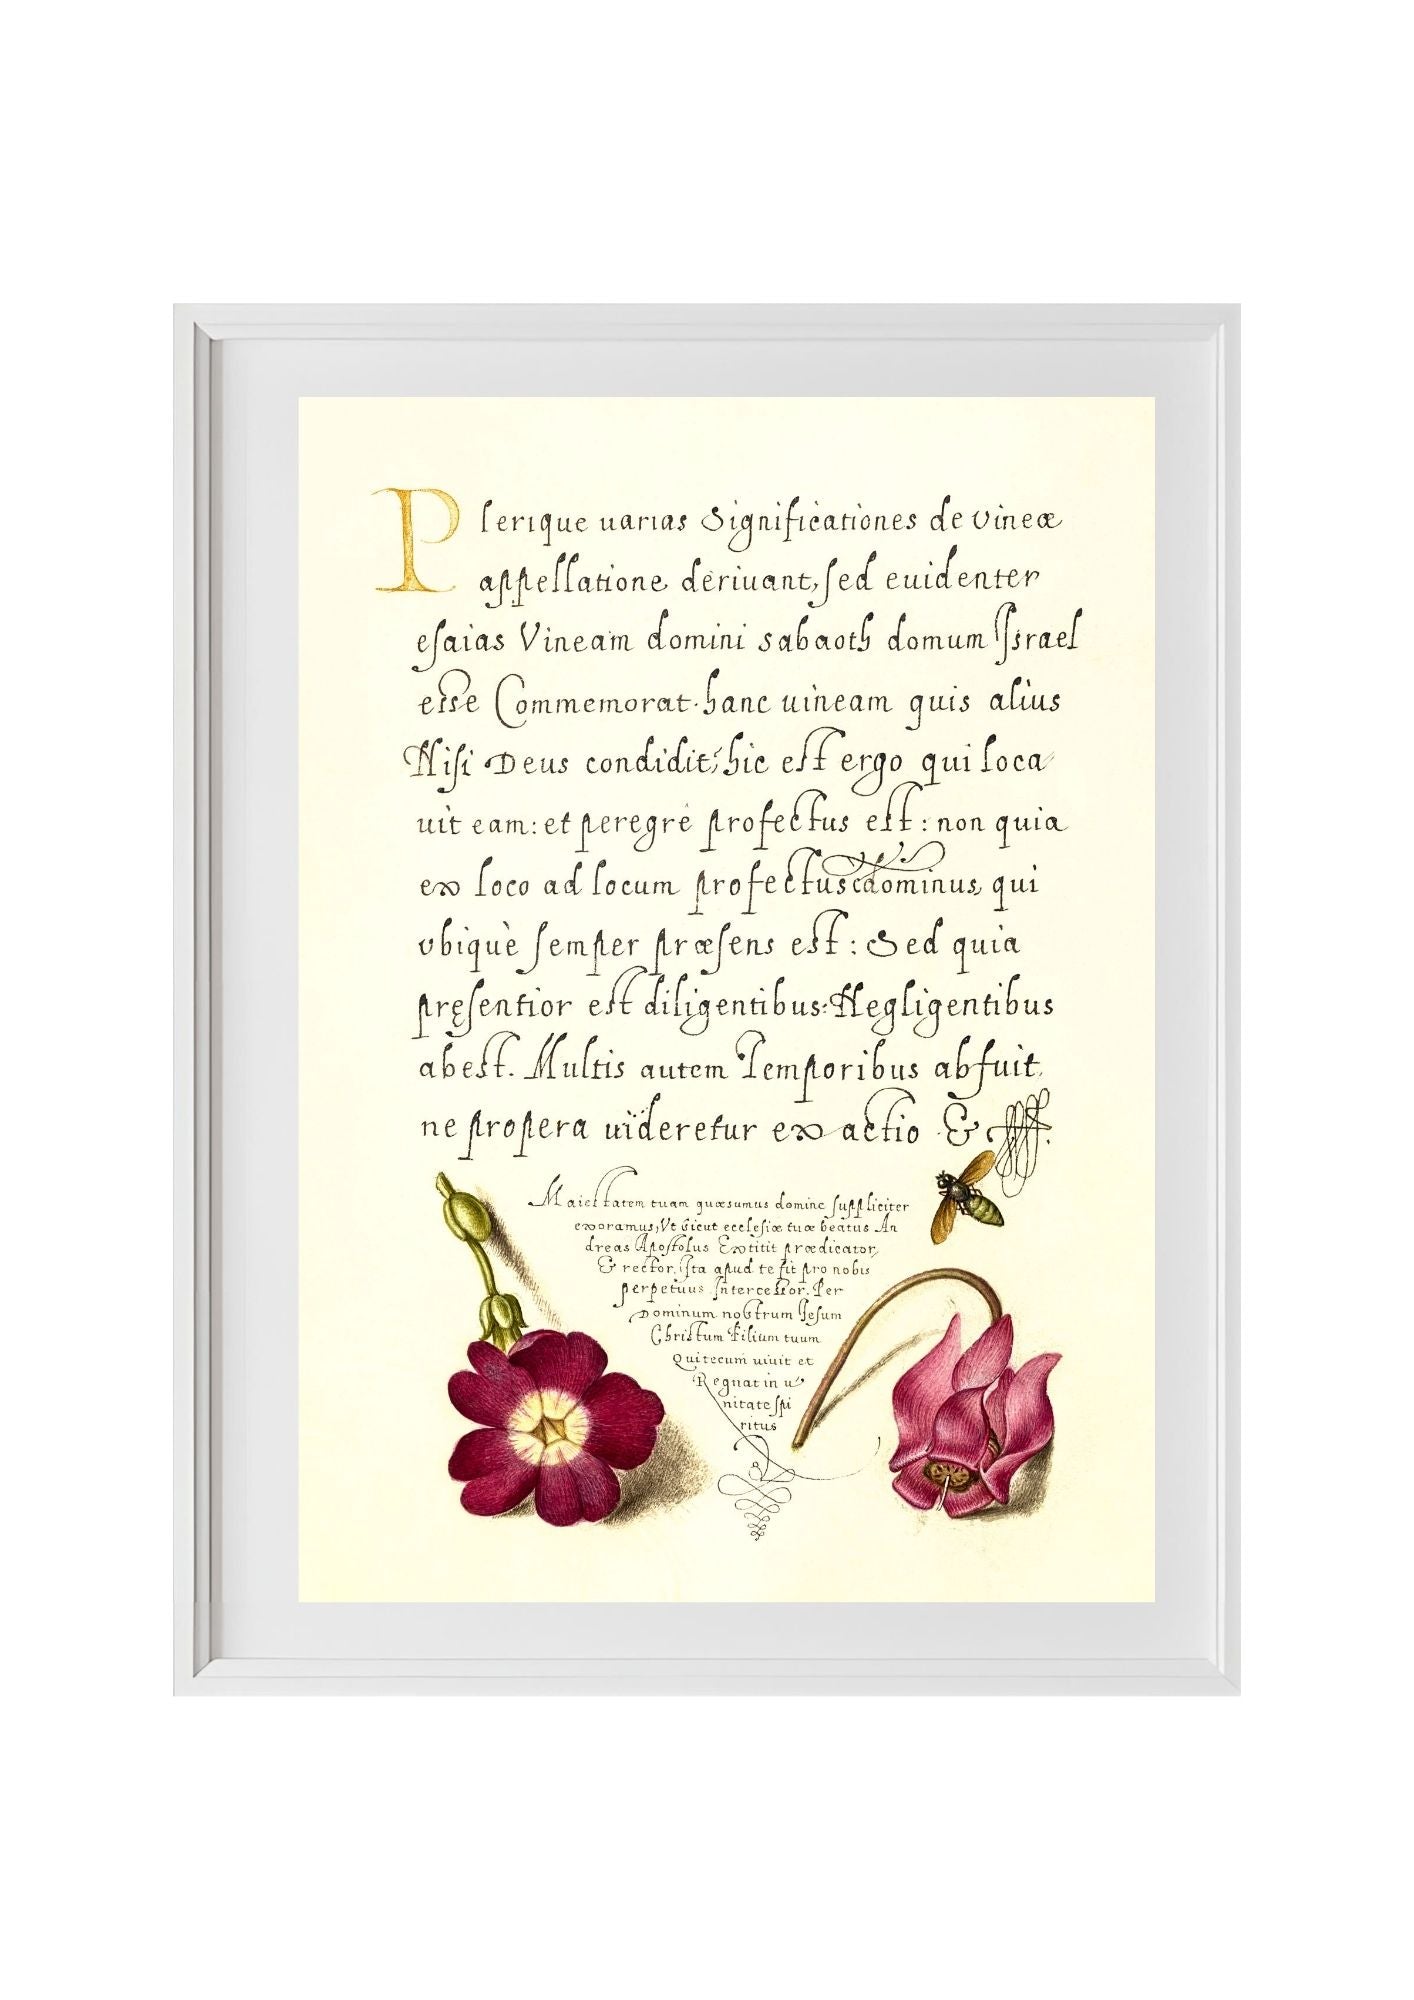 Plerique uarias Significationes de vineæ
appellatione deriuant, sed euidenter
esaias Vineam domini sabaoth domum Israel
esse Commemorat. hanc uineam quis alius
Nisi Deus condidit; hic est ergo qui loca
uit eam: et peregrè profectus est: non quia
ex loco ad locum profectus dominus, qui
vbique semper præsens est: Sed quia
pręsentior est diligentibus: Negligentibus
abest. Multis autem Temporibus abfuit
ne propera uideretur exactio &
Maiestatem tuam quæsumus domine suppliciter
exoramus, Vt sicut ecclesiæ tuæ beatus An
dreas Apostolus Extitit prædicator,
& rector, Ita apud te sit pro nobis
perpetuus Intercessor. Per
Dominum nostrum Iesum
Christum Filium tuum
Qui tecum uiuit et
Regnat in u
nitate spi
ritus